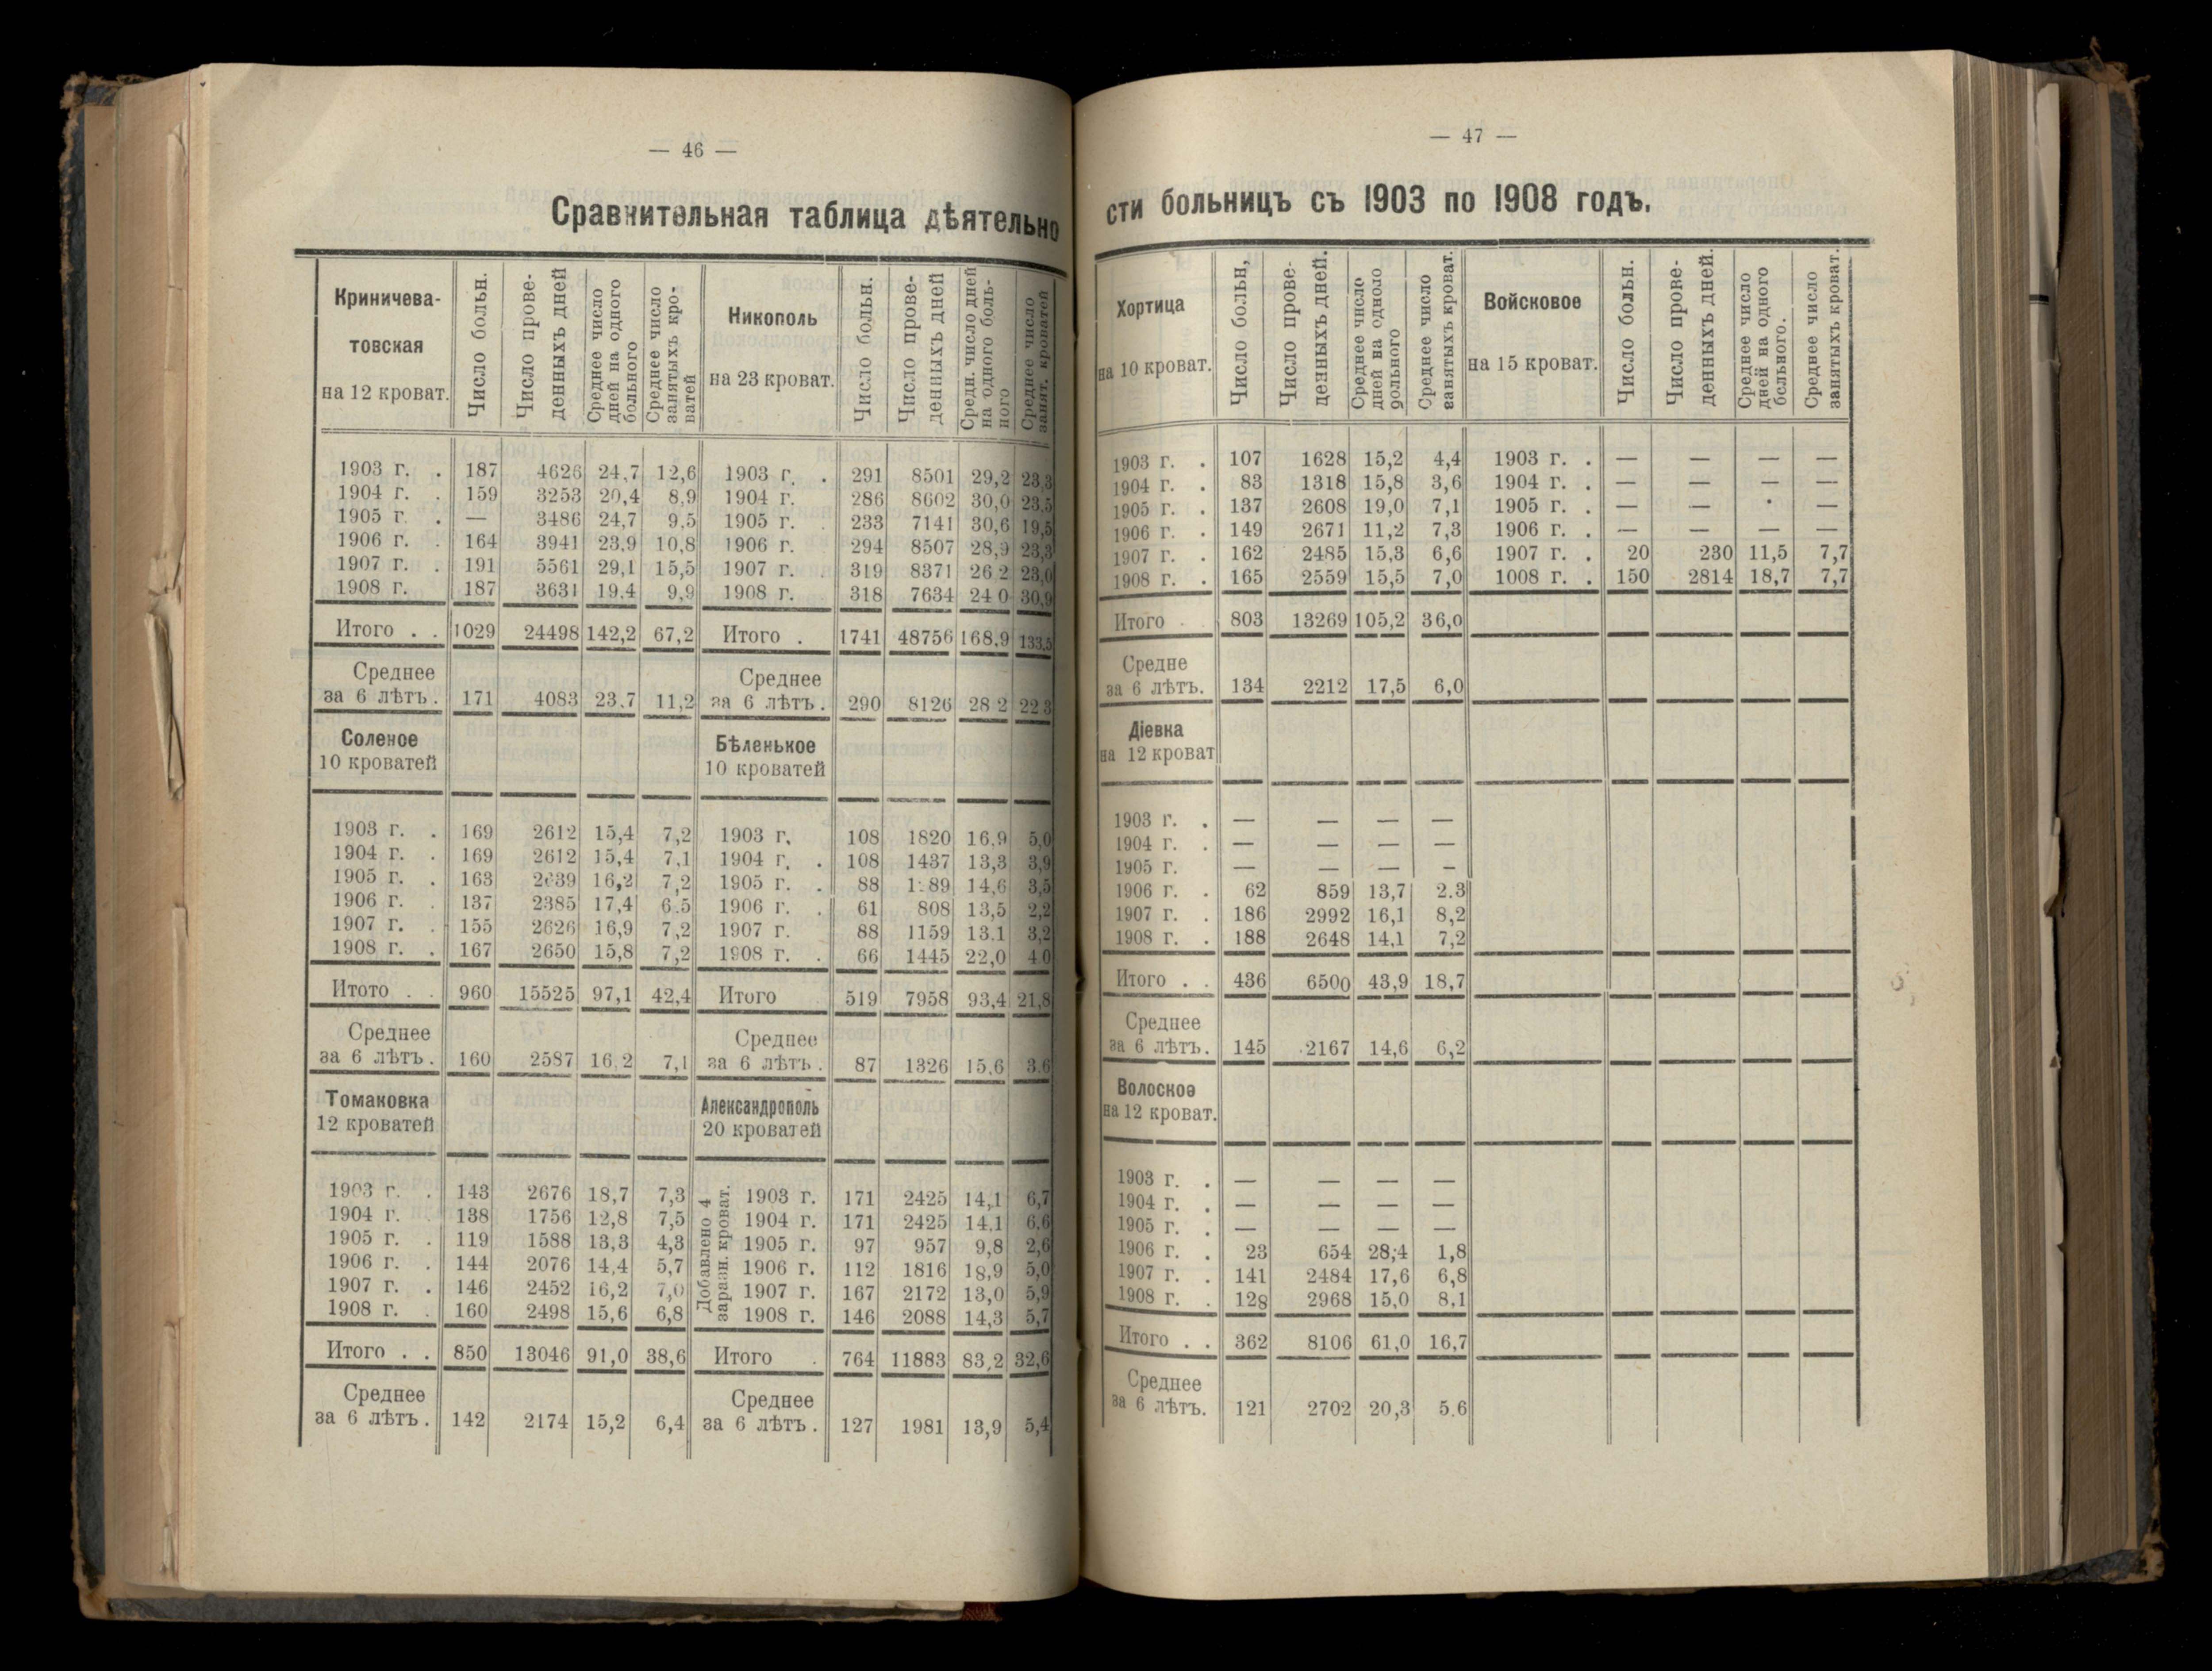 — 46 —
Сравнительная таблица дѣятельно
Криничева-
товская
на 12 кроват.
Число больн.
Число прове-
денныхъ дней
Среднее число
дней на одного
больного
Среднее число
занятыхъ кро-
ватей
Никополь
на 23 кроват.
Число больн.
Число прове-
денныхъ дней
Средн. число дней
на одного боль-
ного
Среднее число
занят. кроватей
1903 г. . 187 4626 24,7 12,6 1903 г. . 291 8501 29,2 23,3
1904 г. . 159 3253 20,4 8,9 1904 г. 286 8602 30,0 23,5
1905 г. . — 3486 24,7 9,5 1905 г. . 233 7141 30,6 19,5
1906 г. . 164 3941 23,9 10,8 1906 г. 294 8507 28,9 23,3
1907 г. . 191 5561 29,1 15,5 1907 г. . 319 8371 26 2 23,0
1908 г. 187 3631 19,4 9,9 1908 г. 318 7634 24 0 30,9
Итого . . 1029 24498 142,2 67,2 Итого . 1741 48756 168,9 133,5
Среднее Среднее
за 6 лѣтъ. 171 4083 23,7 11,2 за 6 лѣтъ. 290 8126 28 2 22 3
Соленое Бѣленькое
10 кроватей 10 кроватей
1903 г. . 169 2612 15,4 7,2 1903 г. 108 1820 16,9 5,0
1904 г. . 169 2612 15,4 7,1 1904 г. . 108 1437 13,3 3,9
1905 г. . 163 2639 16,2 7,2 1905 г. . 88 14,6 3,5
1906 г. . 137 2385 17,4 6.5 1906 г. . 61 808 13,5 2,2
1907 г. . 155 2626 16,9 7,2 1907 г. 88 1159 13.1 3,2
1908 г. . 167 2650 15,8 7,2 1908 г. . 66 1445 22,0 4 0
Итото . . 960 15525 97,1 42,4 Итого 519 7958 93,4 21,8
Среднее Среднее
за 6 лѣтъ. 160 2587 16,2 7,1 за 6 лѣтъ. 87 1326 15,6 3.6
Томаковка Александрополь
12 кроватей 20 кроватей
Добавлено 4
заразн. кроват.
1903 г. . 143 2676 18,7 7,3 1903 г. 171 2425 14,1 6,7
1904 г. . 138 1756 12,8 7,5 1904 г. 171 2425 14,1 6,6
1905 г. . 119 1588 13,3 4,3 1905 г. 97 957 9,8 2,6
1906 г. . 144 2076 14,4 5,7 1906 г. 112 1816 18,9 5,0
1907 г. . 146 2452 16,2 7,0 1907 г. 167 2172 13,0 5,9
1908 г. . 160 2498 15,6 6,8 1908 г. 146 2088 14,3 5,7
Итого . . 850 13046 91,0 38,6 Итого . 764 11883 83,2 32,6
Среднее Среднее
за 6 лѣтъ. 142 2174 15,2 6,4 за 6 лѣтъ. 127 1981 13,9 5,4
— 47 —
сти больницъ съ 1903 по 1908 годъ.
Хортица
на 10 кроват.
Число больн,
Число прове-
денныхъ дней.
Среднее число
дней на одноло
gольного
Среднее число
занятыхъ кроват.
Войсковое
на 15 кроват.
Число больн.
Число прове-
денныхъ дней.
Среднее число
дней на одного
больного.
Среднее число
занятыхъ кроват.
1903 г. . 107 1628 15,2 4,4 1903 г. . — — — —
1904 г. . 83 1318 15,8 3,6 1904 г. . — — — —
1905 г. . 137 2608 19,0 7,1 1905 г. . — — · —
1906 г. . 149 2671 11,2 7,3 1906 г. . — — — —
1907 г. . 162 2485 15,3 6,6 1907 г. . 20 230 11,5 7,7
1908 г. . 165 2559 15,5 7,0 1008 г. . 150 2814 18,7 7,7
Итого . 803 13269 105,2 36,0
Средне
за 6 лѣтъ. 134 2212 17,5 6,0
Діевка
на 12 кроват
1903 г. . — — — —
1904 г. . — — — —
1905 г. — — — –
1906 г. . 62 859 13,7 2.3
1907 г. . 186 2992 16,1 8,2
1908 г. . 188 2648 14,1 7,2
Итого . . 436 6500 43,9 18,7
Среднее
за 6 лѣтъ. 145 2167 14,6 6,2
Волоское
на 12 кроват.
1903 г. . — — — —
1904 г. . — — — —
1905 г. . — — — —
1906 г. . 23 654 28,4 1,8
1907 г. . 141 2484 17,6 6,8
1908 г. . 128 2968 15,0 8,1
Итого . . 362 8106 61,0 16,7
Среднее
за 6 лѣтъ. 121 2702 20,3 5.6